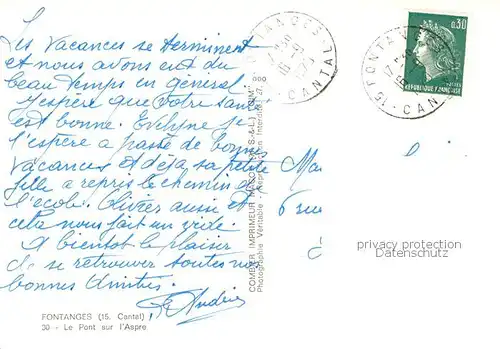 Les vacances se terminent
et nous avons eu du
beau temps en général
J'espère que votre santé
est bonne. Evelyne je
l'espère a passé de bonne
vacances et déjà sa petite
fille a repris le chemin de
l'école. Olivier aussi et
cela nous fait un vide.
A bientôt le plaisir
de se retrouver toutes nos
bonnes amitiés.
FONTANGES (15. Cantal)
30 - Le Pont sur l'Aspre
COMBIER IMPRIMEUR MACON (S.-&-L.) "CIM"
Photographie Véritable - Reproduction Interdite
FONTANGES
CANTAL
0,30
REPUBLIQUE FRANÇAISE
15 FONTANGES
CANTAL
6 rue
privacy protection
Datenschutz